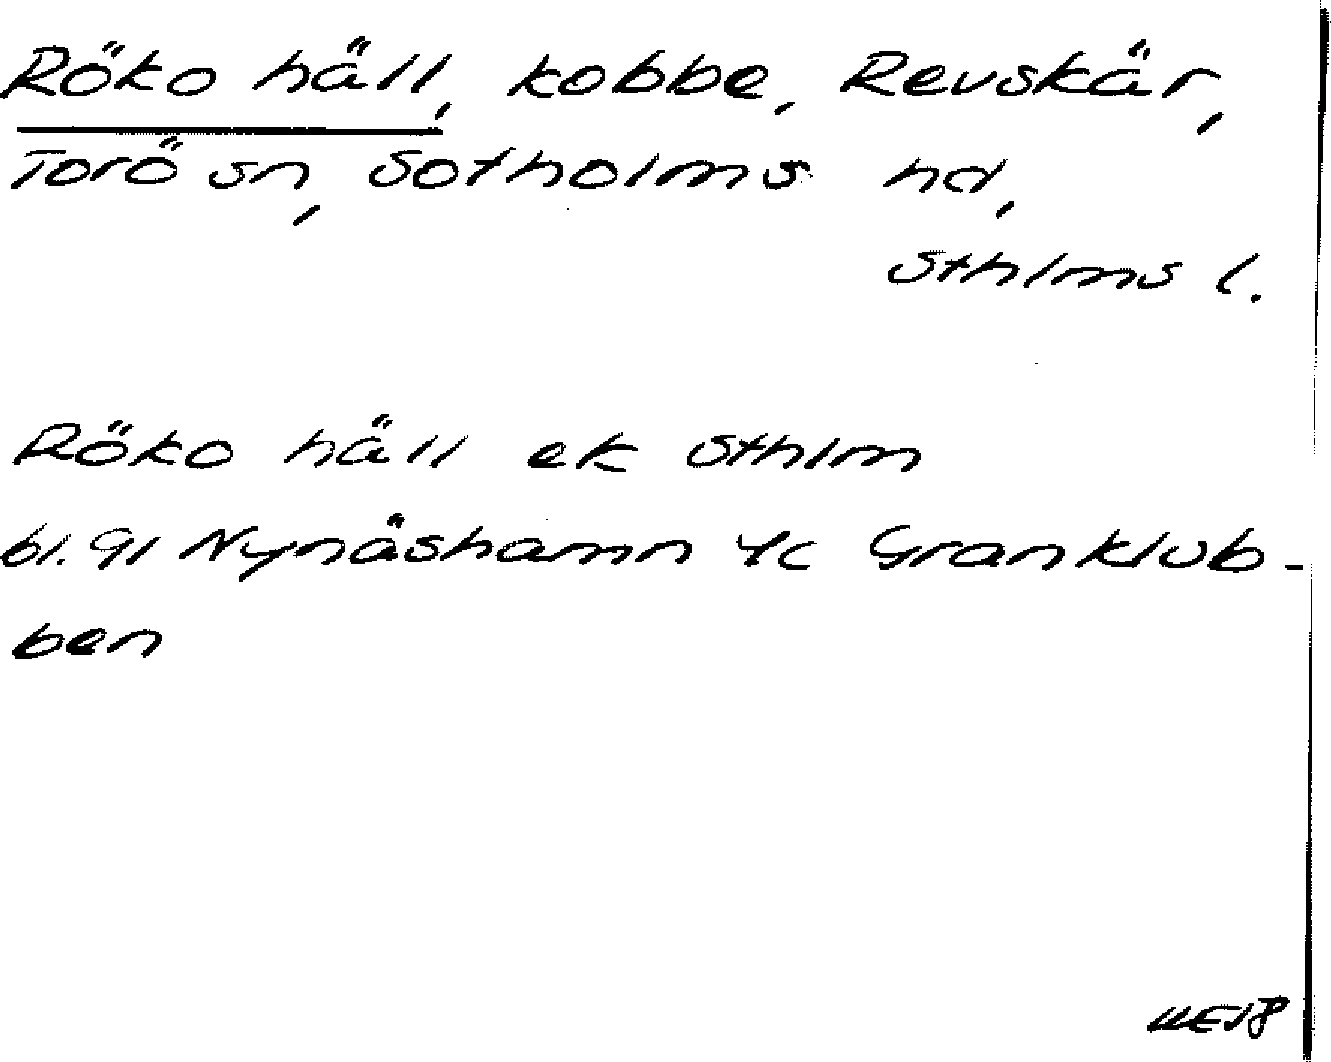 Röko häll, kobbe, Revskär,
Torö sn, Sotholms hd,
Sthlms l.
Röko häll ek Sthlm
bl. 91 Nynäshamn 4c Granklub-
ben